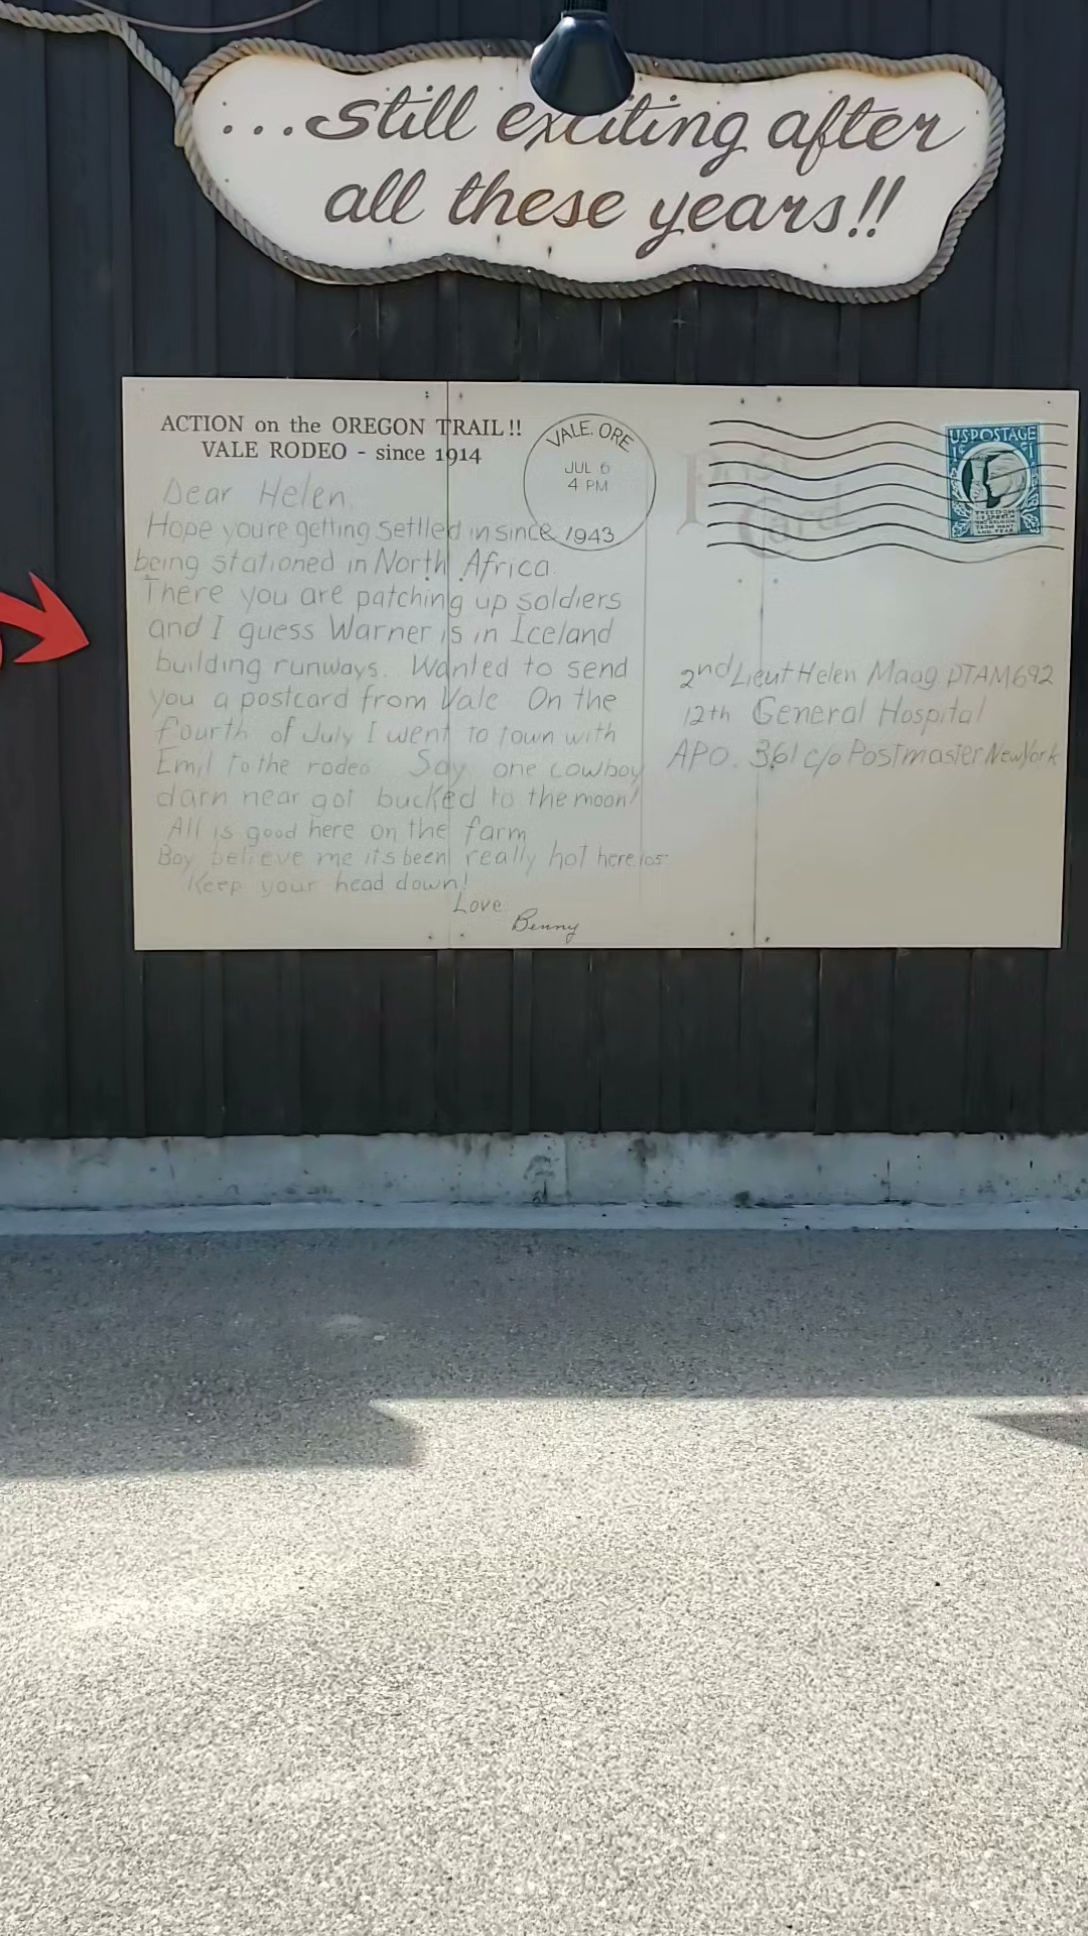 ...still exciting after
all these years!!
ACTION on the OREGON TRAIL!!
VALE RODEO - since 1914
VALE. ORE
JUL 6
4 PM
1943
Post
Card
US POSTAGE
1¢ 1
Dear Helen,
Hope youre getting settled in since
being stationed in North Africa.
There you are patching up soldiers
and I guess Warner is in Iceland
building runways. Wanted to send
you a postcard from Vale On the
fourth of July I went to town with
Emil to the rodeo Say one cowboy
darn near got bucked to the moon!
All is good here on the farm
Boy believe me its been really hot here
Keep your head down!
Love
Benny
2nd Lieut Helen Maag
12th General Hospital
APO. 361 c/o Postmaster New York